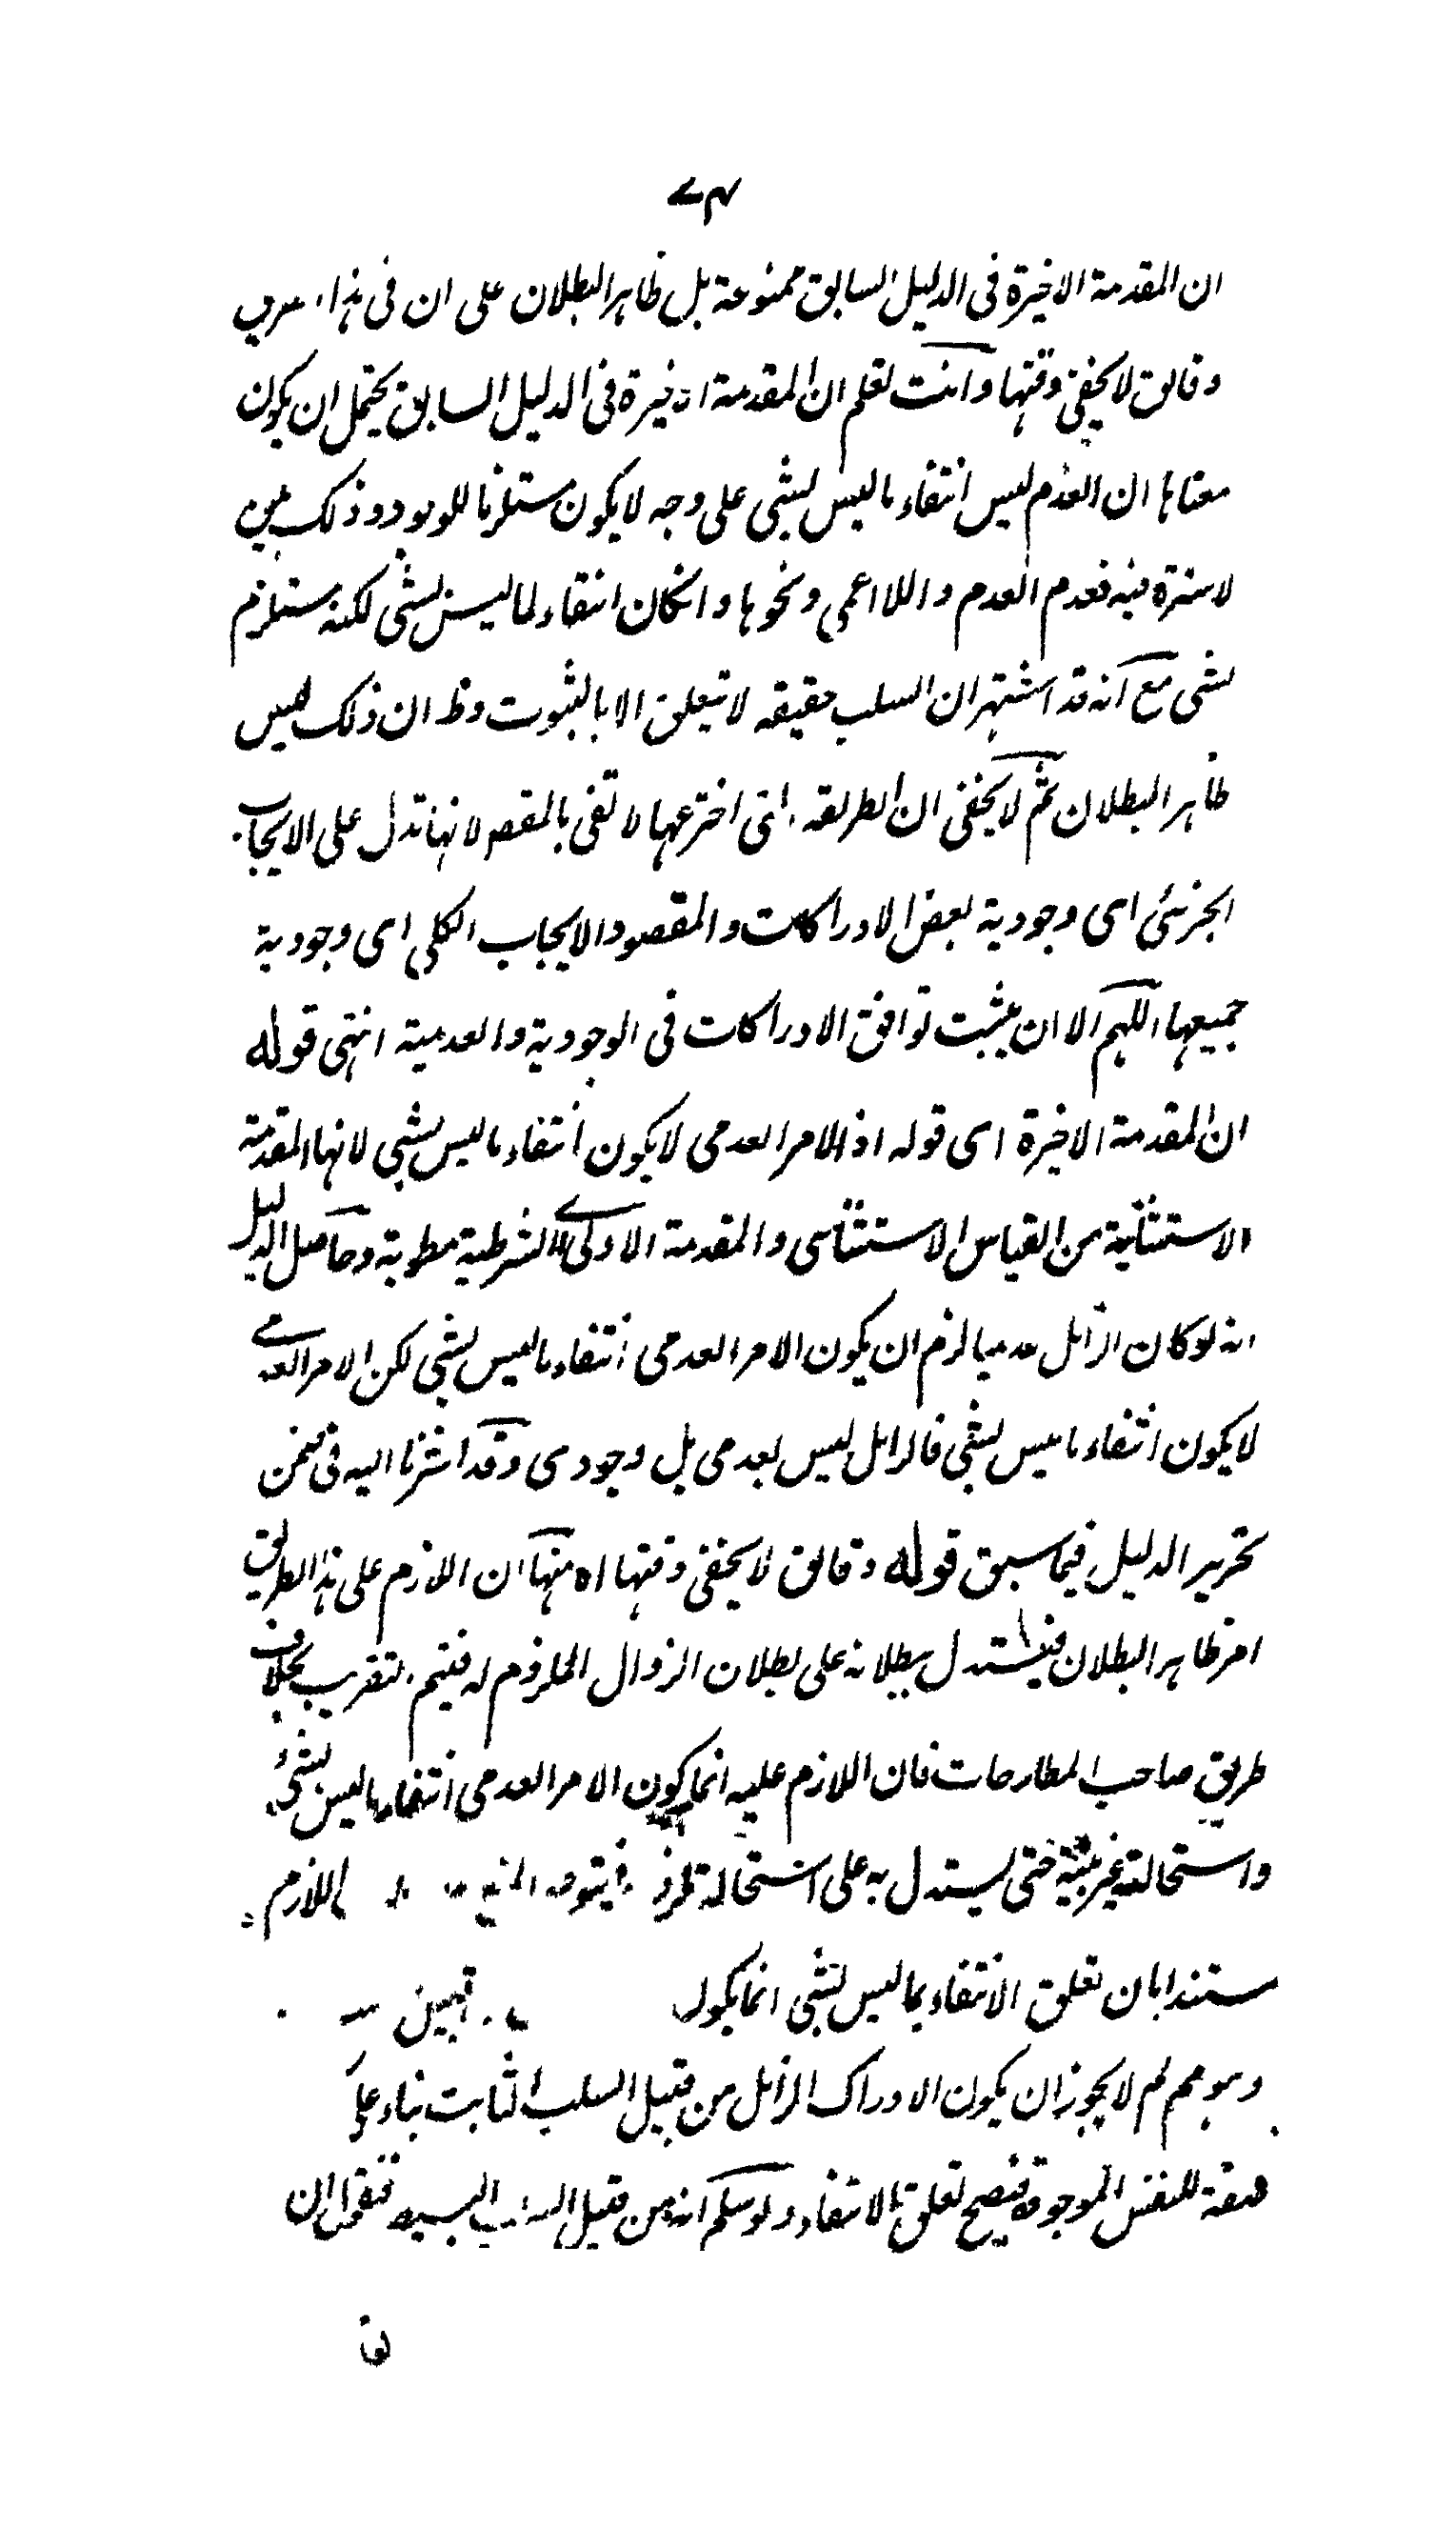 ۷۴
ان المقدمة الاخيرة فى الدليل السابق ممنوعة بل ظاهر البطلان على ان فى هذا
دقائق لا يخفى دقتها وانت تعلم ان المقدمة الاخيرة فى الدليل السابق يحتمل ان يكون
معناها ان العدم ليس انتفاء ما ليس بشى على وجه لا يكون مستلزما للوجود وذلك مبين
لا سترة فيه فعدم العدم واللا اعمى ونحوها وانكان انتفاء لما ليس بشى لكنه مستلزم
لشى مع انه قد اشتهر ان السلب حقيقة لا تتعلق الا بالثبوت وظ ان ذلك ليس
ظاهر البطلان ثم لا يخفى ان الطريقة التى اخترعها لا تفى بالمقصود لانها تدل على الايجاب
الجزئى اى وجودية بعض الادراكات والمقصود الايجاب الكلى اى وجودية
جميعها اللهم الا ان يثبت توافق الادراكات فى الوجودية والعدمية انتهى قوله
ان المقدمة الاخيرة اى قوله اذ الامر العدمى لا يكون انتفاء ما ليس بشى لانها المقدمة
الاستثنائية من القياس الاستثنائى والمقدمة الاولى الشرطية مطوية وحاصل الدليل
انه لو كان الزائل عدميا لزم ان يكون الامر العدمى انتفاء ما ليس بشى لكن الامر العدمے
لا يكون انتفاء ما ليس بشى فالزائل ليس بعدمى بل وجودى وقد اشرنا اليه فى ضمن
تحرير الدليل فيما سبق قوله دقائق لا يخفى دقتها اه منها ان اللازم على هذا الطريق
امر ظاهر البطلان فيستدل ببطلانه على بطلان الزوال الملزوم له فيتم التقريب بخلاف
طريق صاحب المطارحات فان اللازم عليه انما كون الامر العدمى انتفاء ما ليس بشئ
واستحالته غير بينة حتى يستدل به على استحالة فيتوجه المنع اللازم
مستندا بان تعلق الانتفاء بما ليس بشى انما يكون
وهو مم لم لا يجوز ان يكون الادراك الزائل من قبيل السلب الثابت بناء على
صفة للنفس الموجودة فيصح تعلق الانتفاء ولو سلم انه من قبيل السلب البسيط فنقول ان